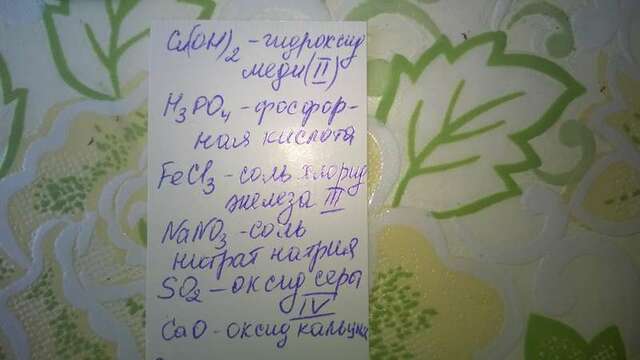 Cu(OH)2 - гидроксид
меди (II)
H3PO4 - фосфор-
ная кислота
FeCl3 - соль хлорид
железа III
NaNO3 - соль
нитрат натрия
SO2 - оксид серы
IV
CaO - оксид кальция